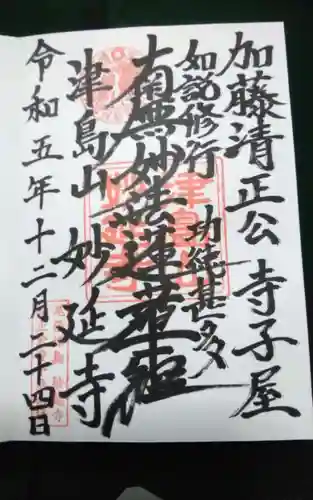 加藤清正公 寺子屋
如説修行 功徳甚多
南無妙法蓮華経
津島山 妙延寺
令和五年十二月二十四日